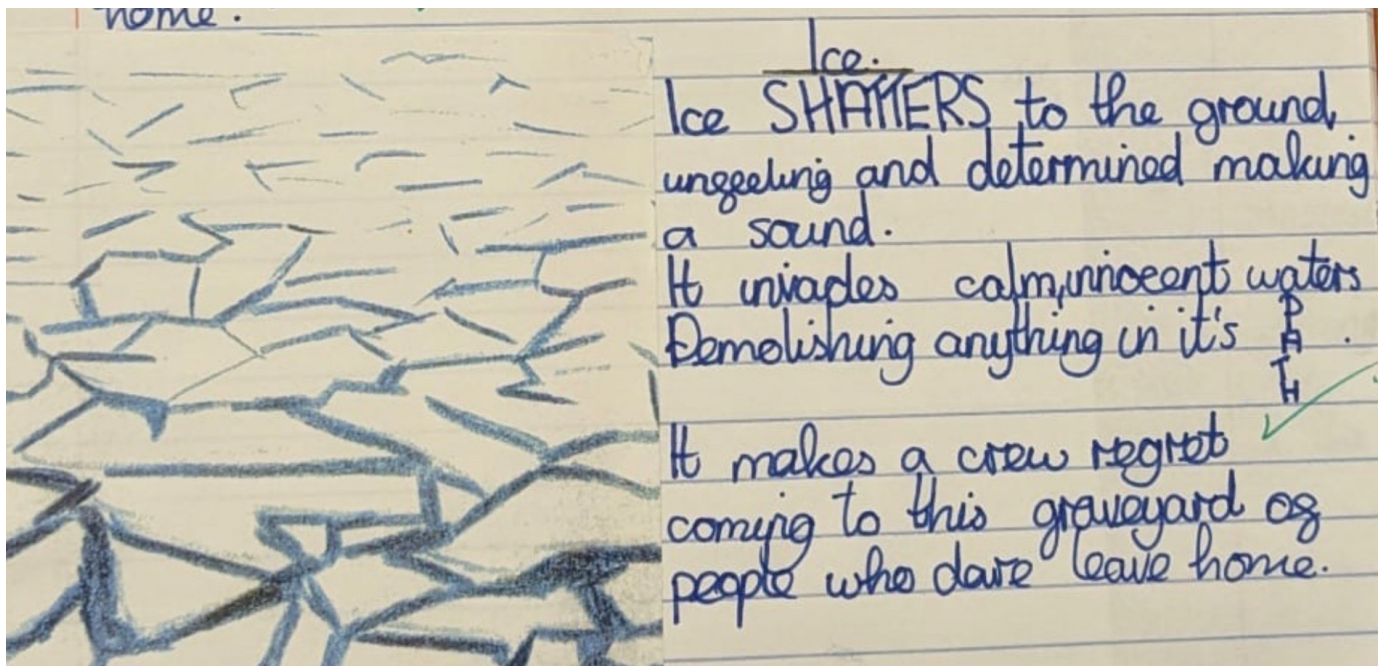 home.
Ice.
Ice SHATTERS to the ground,
unfeeling and determined making
a sound.
It invades calm, innocent waters
Demolishing anything in it's PATH.
It makes a crew regret
coming to this graveyard of
people who dare leave home.